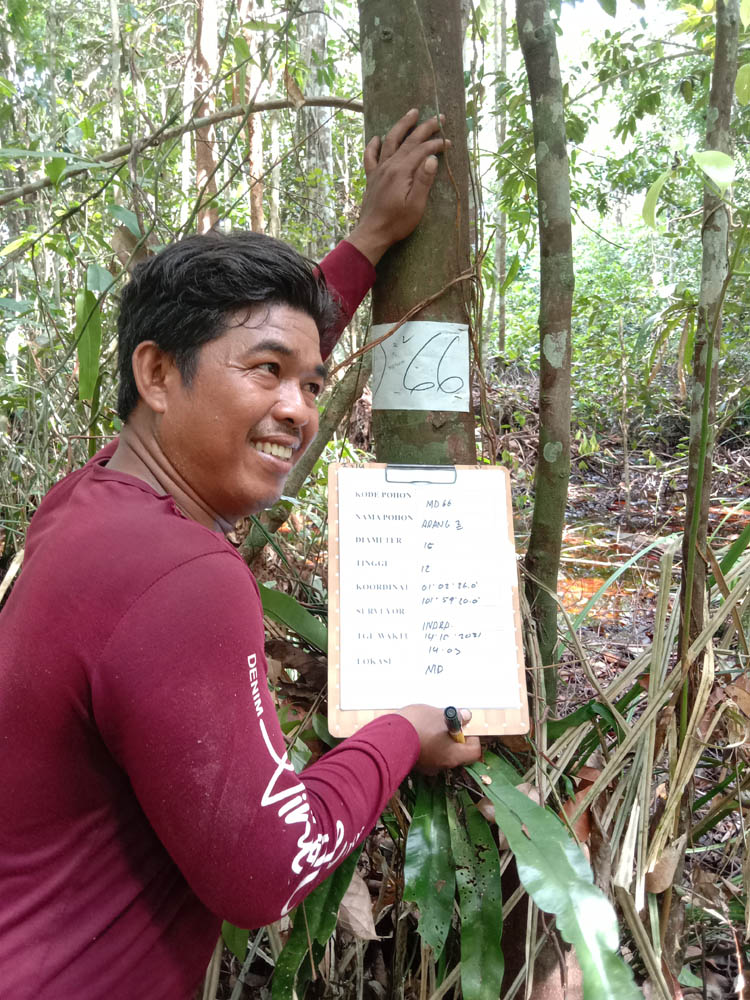 66
KODE POHON MD 66
NAMA POHON ARANG 2
DIAMETER 15
TINGGI 12
KOORDINAT 01° 02' 26.0"
101° 59' 20.0"
SURVEYOR INDRA.
TGL WAKTU 14.10.2021
14.03
LOKASI MD
DENIM